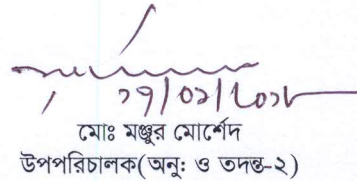 ১৭/০১/২০১৮
মোঃ মঞ্জুর মোর্শেদ
উপপরিচালক(অনু: ও তদন্ত-২)